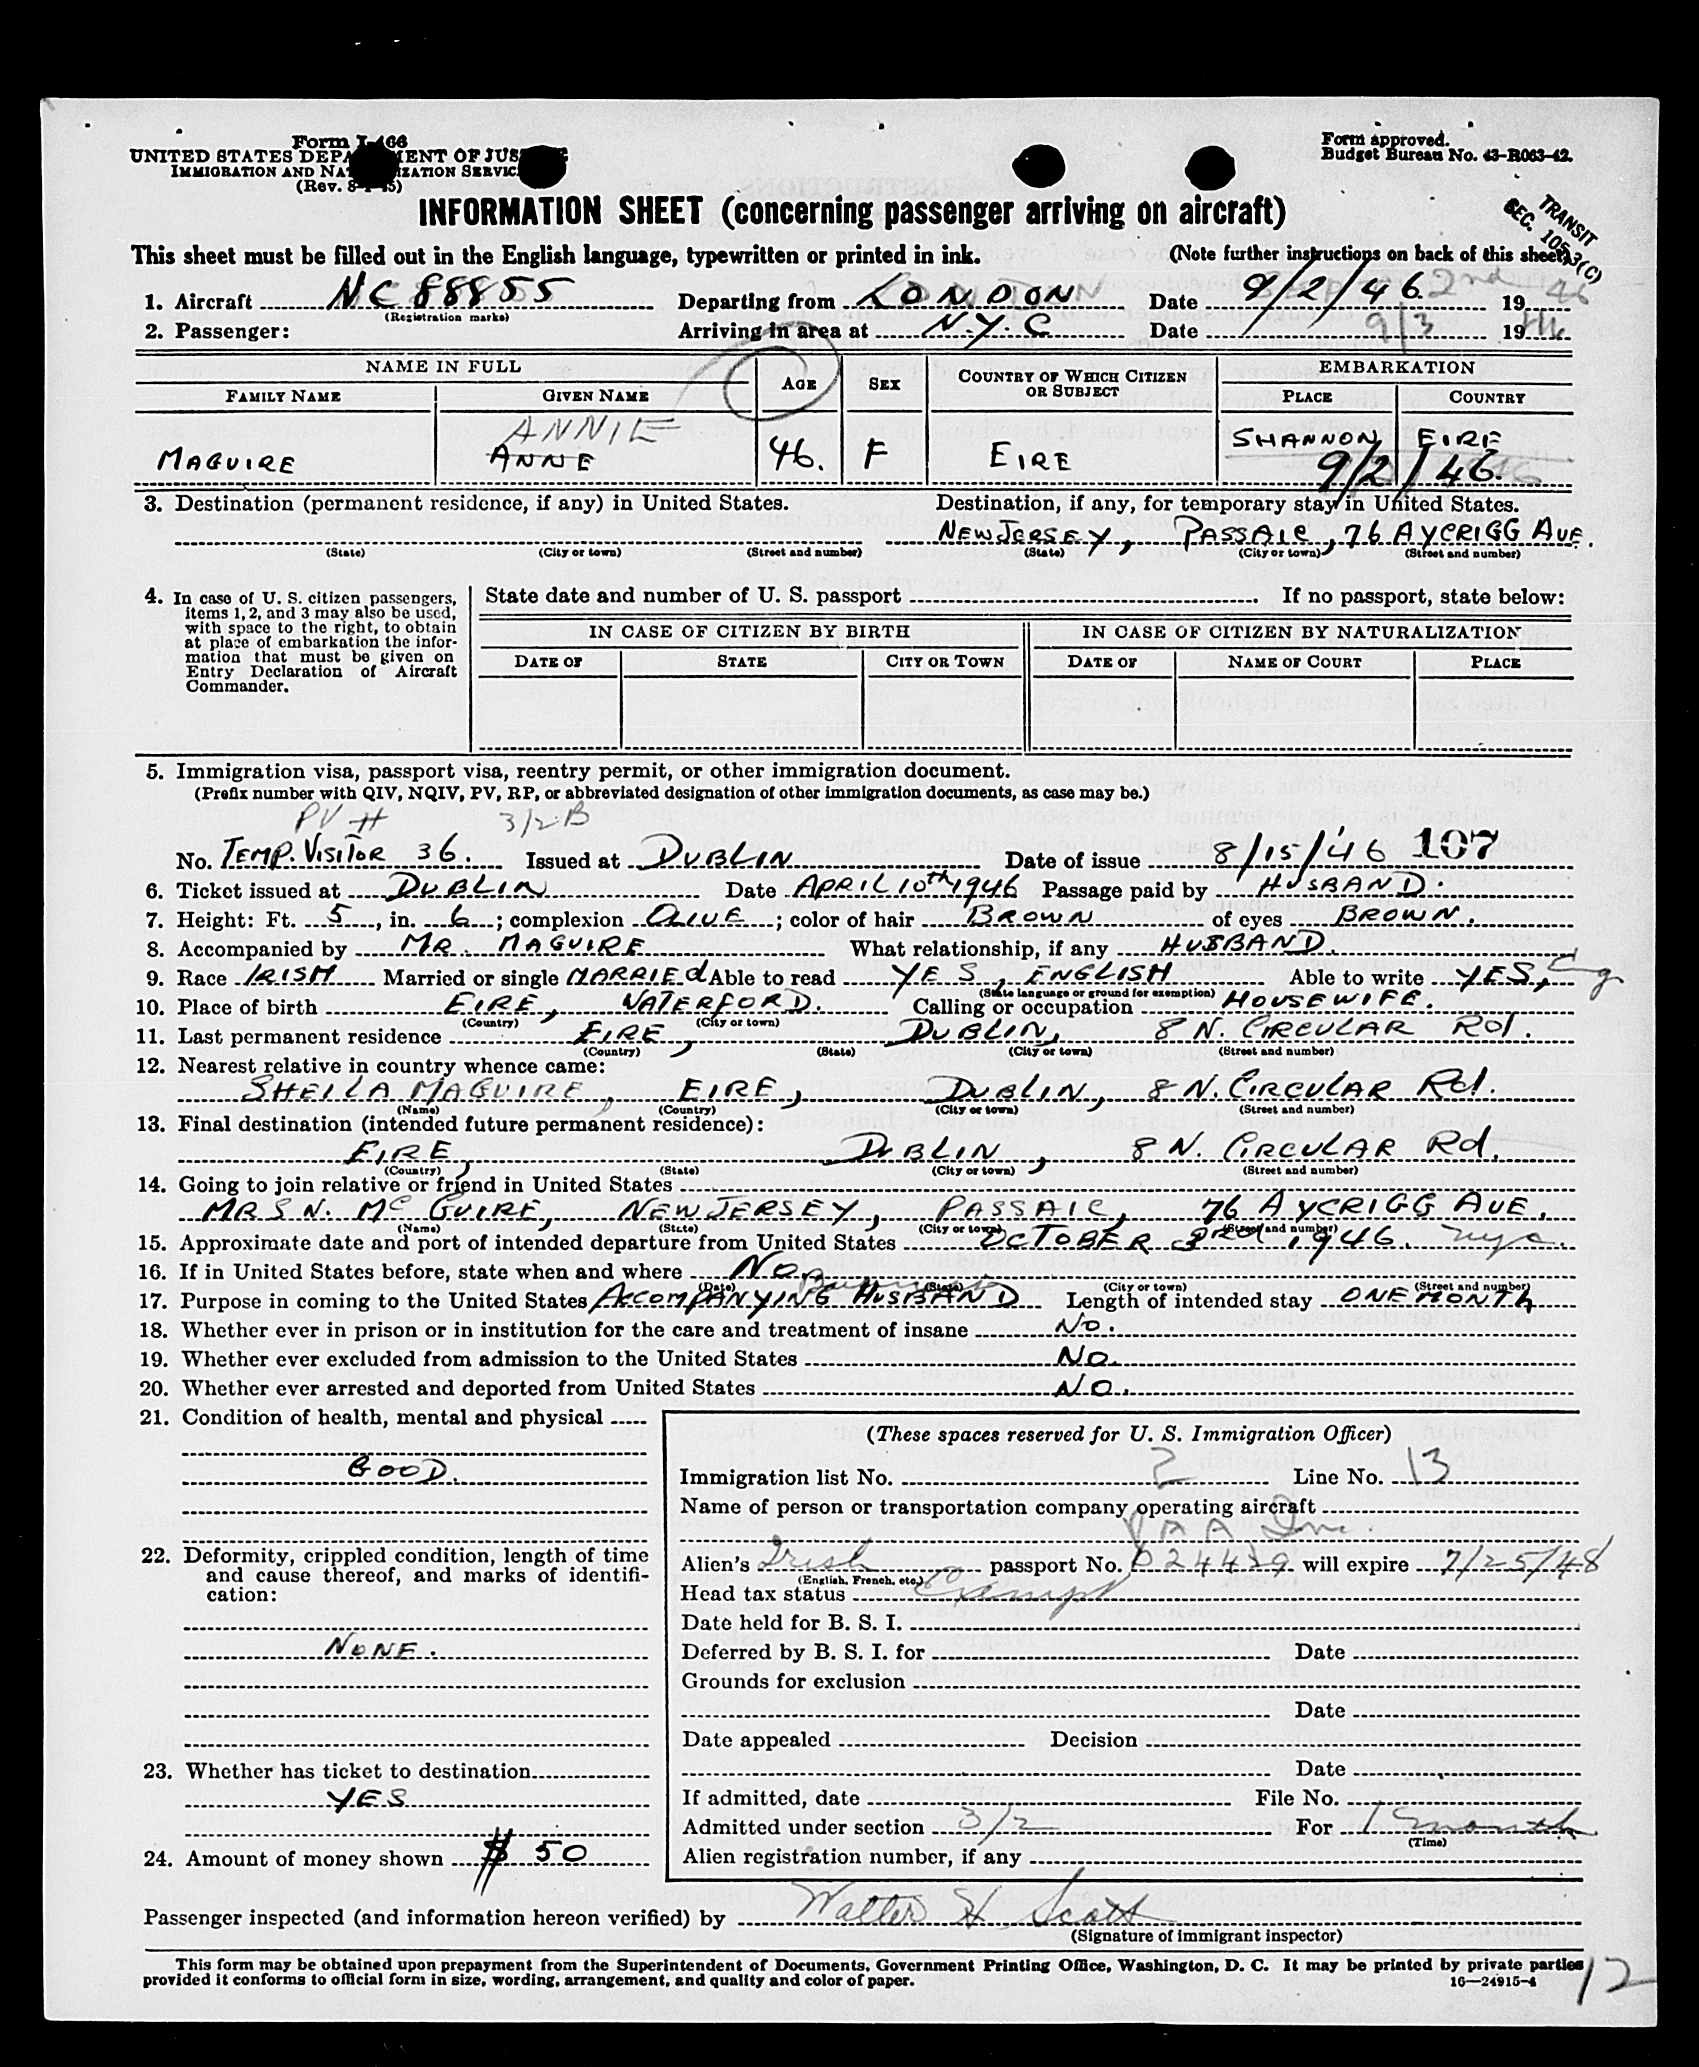 Form I-466
UNITED STATES DEPARTMENT OF JUSTICE
IMMIGRATION AND NATURALIZATION SERVICE
(Rev. 8-1-45)
Form approved.
Budget Bureau No. 43-R063-42.
TRANSIT
SEC. 105.3(C)
INFORMATION SHEET (concerning passenger arriving on aircraft)
This sheet must be filled out in the English language, typewritten or printed in ink. (Note further instructions on back of this sheet)
1. Aircraft NC 88855 Departing from LONDON Date 9/2/46 2nd 19 46
(Registration marks)
2. Passenger: Arriving in area at N.Y.C Date 9/3 19 46
NAME IN FULL AGE SEX COUNTRY OF WHICH CITIZEN OR SUBJECT EMBARKATION
FAMILY NAME GIVEN NAME PLACE COUNTRY
ANNIE
MAGUIRE ANNE 46. F EIRE SHANNON EIRE
9/2/46.
3. Destination (permanent residence, if any) in United States. Destination, if any, for temporary stay in United States.
NEW JERSEY, PASSAIC, 76 AYCRIGG AVE.
(State) (City or town) (Street and number) (State) (City or town) (Street and number)
4. In case of U. S. citizen passengers, items 1, 2, and 3 may also be used, with space to the right, to obtain at place of embarkation the information that must be given on Entry Declaration of Aircraft Commander.
State date and number of U. S. passport . If no passport, state below:
IN CASE OF CITIZEN BY BIRTH IN CASE OF CITIZEN BY NATURALIZATION
DATE OF STATE CITY OR TOWN DATE OF NAME OF COURT PLACE
5. Immigration visa, passport visa, reentry permit, or other immigration document.
(Prefix number with QIV, NQIV, PV, RP, or abbreviated designation of other immigration documents, as case may be.)
PV # 3/2 B
No. TEMP. VISITOR 36. Issued at DUBLIN Date of issue 8/15/46 107
6. Ticket issued at DUBLIN Date APRIL 10th 1946 Passage paid by HUSBAND.
7. Height: Ft. 5, in. 6; complexion OLIVE; color of hair BROWN of eyes BROWN.
8. Accompanied by MR. MAGUIRE What relationship, if any HUSBAND.
9. Race IRISH Married or single MARRIEd Able to read YES, ENGLISH Able to write YES, Eng
(State language or ground for exemption)
10. Place of birth EIRE, WATERFORD. Calling or occupation HOUSEWIFE.
(Country) (City or town)
11. Last permanent residence EIRE, DUBLIN, 8 N. CIRCULAR Rd.
(Country) (State) (City or town) (Street and number)
12. Nearest relative in country whence came:
SHEILA MAGUIRE, EIRE, DUBLIN, 8 N. CIRCULAR Rd.
(Name) (Country) (City or town) (Street and number)
13. Final destination (intended future permanent residence):
EIRE, DUBLIN, 8 N. CIRCULAR Rd.
(Country) (State) (City or town) (Street and number)
14. Going to join relative or friend in United States
MRS N. McGUIRE, NEW JERSEY, PASSAIC, 76 AYCRIGG AVE.
(Name) (State) (City or town) (Street and number)
15. Approximate date and port of intended departure from United States OCTOBER 3rd 1946. nyc.
16. If in United States before, state when and where NO.
(Date) (State) (City or town) (Street and number)
Business
17. Purpose in coming to the United States ACCOMPANYING HUSBAND Length of intended stay ONE MONTH
18. Whether ever in prison or in institution for the care and treatment of insane NO.
19. Whether ever excluded from admission to the United States NO.
20. Whether ever arrested and deported from United States NO.
21. Condition of health, mental and physical
GOOD.
22. Deformity, crippled condition, length of time and cause thereof, and marks of identification:
NONE.
23. Whether has ticket to destination
YES
24. Amount of money shown $ 50
(These spaces reserved for U. S. Immigration Officer)
Immigration list No. 2 Line No. 13
Name of person or transportation company operating aircraft
PAA Inc.
Alien's Irish passport No. D24429 will expire 7/25/48
(English, French, etc.)
Head tax status Exempt
Date held for B. S. I.
Deferred by B. S. I. for Date
Grounds for exclusion
Date
Date appealed Decision
Date
If admitted, date File No.
Admitted under section 3/2 For 1 month
(Time)
Alien registration number, if any
Passenger inspected (and information hereon verified) by Walter H Scott
(Signature of immigrant inspector)
This form may be obtained upon prepayment from the Superintendent of Documents, Government Printing Office, Washington, D. C. It may be printed by private parties
provided it conforms to official form in size, wording, arrangement, and quality and color of paper. 16—24915-4
12